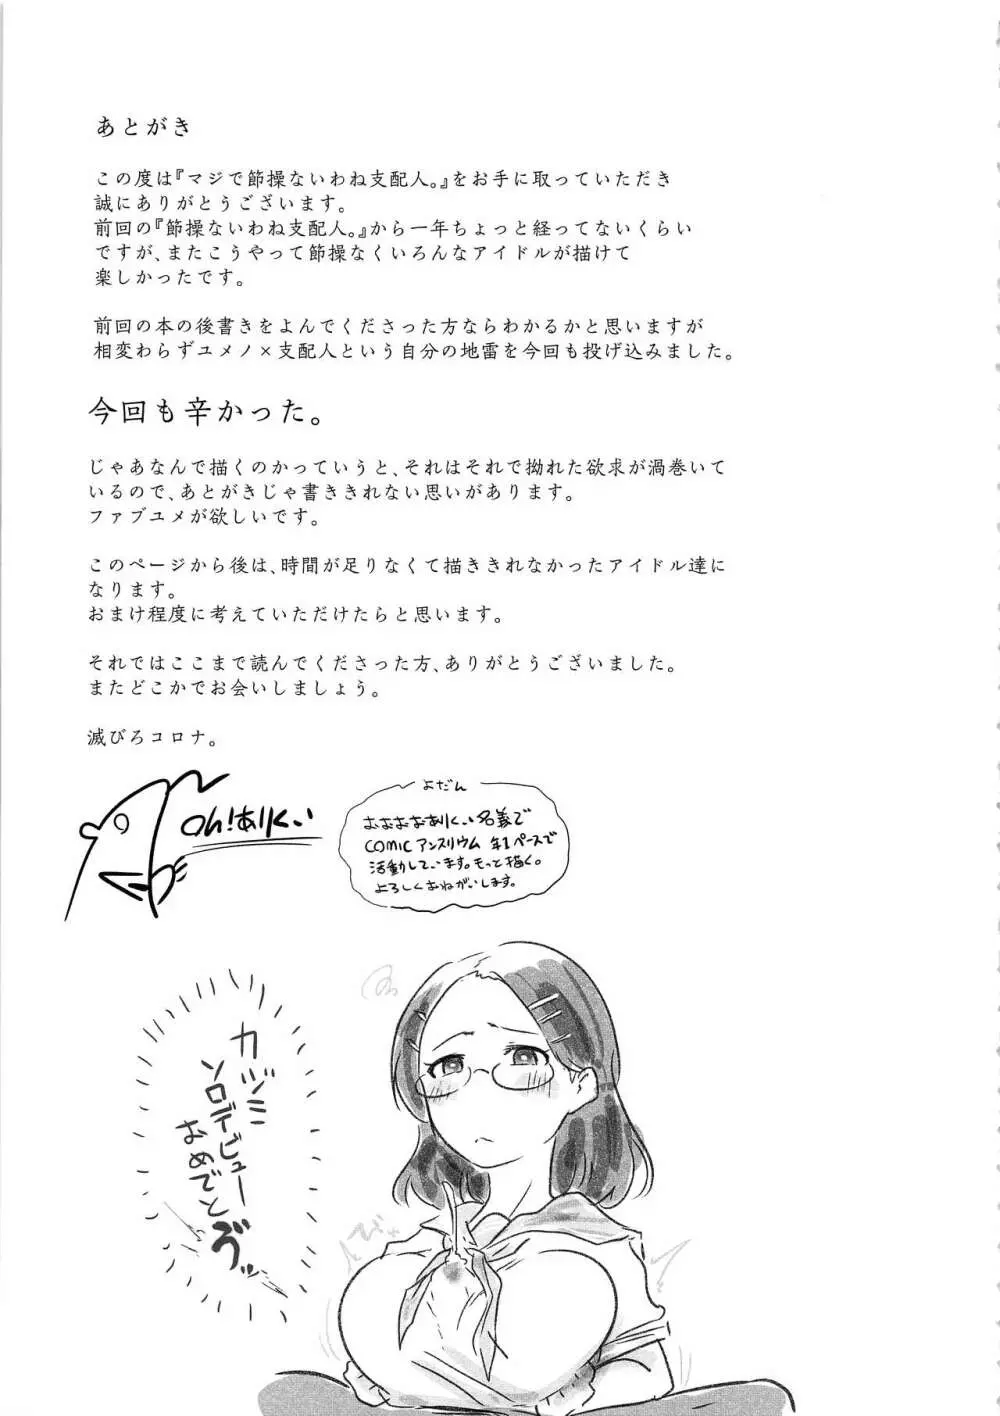 あとがき
この度は『マジで節操ないわね支配人。』をお手に取っていただき
誠にありがとうございます。
前回の『節操ないわね支配人。』から一年ちょっと経ってないくらい
ですが、またこうやって節操なくいろんなアイドルが描けて
楽しかったです。
前回の本の後書きをよんでくださった方ならわかるかと思いますが
相変わらずユメノ×支配人という自分の地雷を今回も投げ込みました。
今回も辛かった。
じゃあなんで描くのかっていうと、それはそれで拗れた欲求が渦巻いて
いるので、あとがきじゃ書ききれない思いがあります。
ファブユメが欲しいです。
このページから後は、時間が足りなくて描ききれなかったアイドル達に
なります。
おまけ程度に考えていただけたらと思います。
それではここまで読んでくださった方、ありがとうございました。
またどこかでお会いしましょう。
滅びろコロナ。
Oh!ありくい
よだん
おおおおおありくい名義で
COMIC アンスリウム 年1ペースで
活動しています。もっと描く。
よろしくおねがいします。
カヅミ
ソロデビュー
おめでと
ゔ